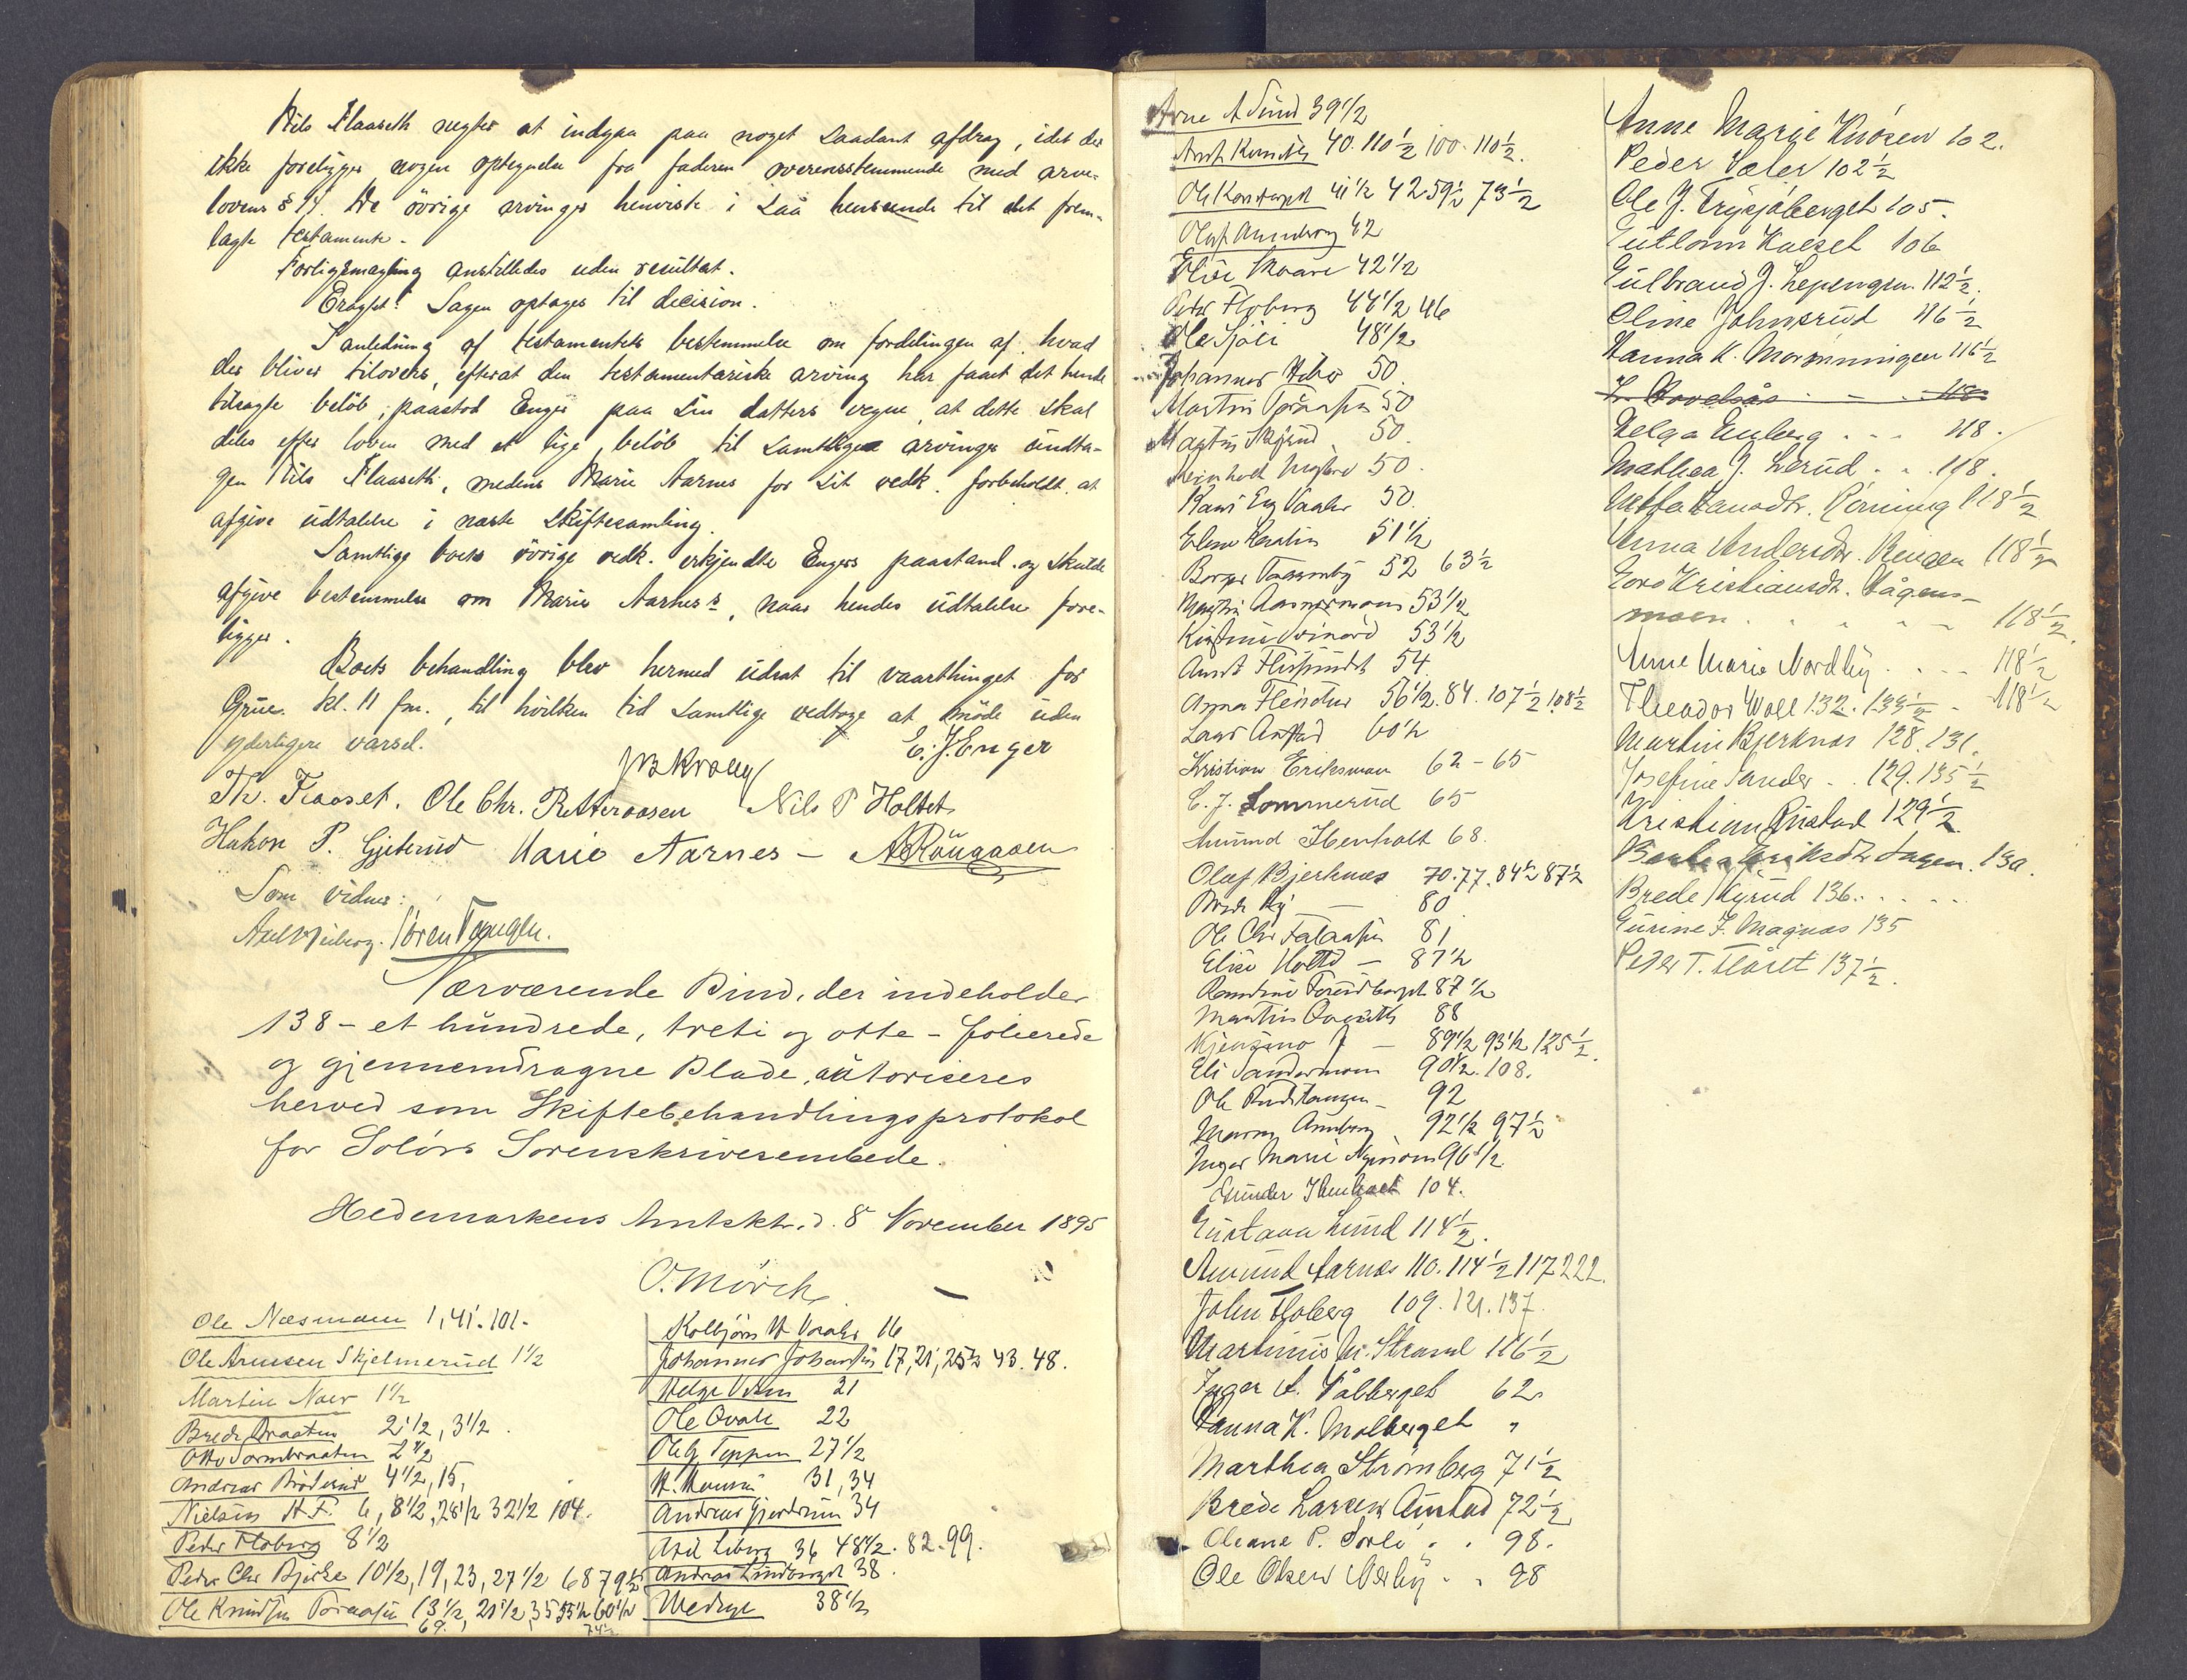 Nils Flaaseth negter at indgaa paa noget saadant afdrag, idet der
ikke foreligger nogen optegnelse fra faderen overensstemmende med arve-
lovens § 14. De övrige arvinger henviste i saa henseende til det frem-
lagte testamente.
Forligsmægling anstilledes uden resultat.
Eragtet: Sagen optages til decision.
I anledning af testamentets bestemmelse om fordelingen af hvad
der bliver tilovers, efterat den testamentariske arving har faaet det hende
tilsagte belöb, paastod Enger paa sin datters vegne, at dette skal
deles efter loven med et lige belöb til samtlige arvinger undta-
gen Nils Flaaseth, medens Marie Aarnes for sit vedk. forbeholdt at
afgive udtalelse i næste skiftesamling.
Samtlige boets övrige vedk. erkjendte Engers paastand og skulde
afgive bestemmelse om Marie Aarnes's, naar hendes udtalelse fore-
ligger.
Boets behandling blev hermed udsat til vaarthinget for
Grue kl. 11 fm., til hvilken tid samtlige vedtoge at möde uden
yderligere varsel.
E. J. Enger
Th. Fraaset. Ole Chr. Rotteraasen Nils P Holtet
Hakon P. Gjeterud Marie Aarnes –
Som vidner:
Nærværende Bind, der indeholder
138 – et hundrede, treti og otte – folierede
og gjennemdragne Blade, autoriseres
herved som Skiftebehandlingsprotokol
for Solørs Sorenskriverembede.
Hedemarkens Amtskt. d. 8 November 1895
O. Mörch
Ole Næsmoen 1, 41. 101.
Ole Arnesen Skjelmerud 1½
Martin Noer 1½
Brede Braaten 2½, 3½
Otto Sormbraaten 2½
Andreas Bröderud 4½, 15,
Nielsen H. F. 6, 8½, 28½ 32½ 104.
Peder Floberg 8½
Peder Chr Bjerke 10½, 19, 23, 27½ 68 79½
Ole Knudsen Poraasen 13½, 21½, 35 55½ 60½
69. 74½
Kolbjörn H Voraler 16
Johannes Johansen 17, 21, 25½ 43. 48.
Helge Veum 21
Ole Qvale 22
Ole G Toppen 27½
H. Hansen 31, 34
Andreas Gjerdrum 34
Axel Liberg 36 48½. 82. 99.
Andreas Lindberget 38
38½
Arne A Lund 39½
40. 110½ 100. 110½.
41½ 42 59½ 73½
Olaf Anneberg 42
Elise Skaare 42½
Peder Floberg 44½ 46
Ole Sjöli 48½
Johannes 50
Martin 50
50.
50.
Kari Eng Vaaler 50
51½
52 63½
53½
53½
54
Anna 56½. 84. 107½ 108½
60½
Kristian Eriksmoen 62 – 65
E. J. Sommerud 65
Amund Ibenholt 68.
Olaf Bjerknes 70. 77. 84½ 87½
80
Ole Chr 81
Elise Holtet – 87½
87½
Martin 88
– 89½ 93½ 125½.
Eli Sandermoen 90½. 108.
Ole Rudstangen – 92
92½ 97½
Inger Marie 96½
Gunder Ibenholt 104.
Gustava Lund 114½.
Amund Aarnes 110. 114½ 117 222.
John Floberg 109. 121. 137.
Martinus M. Strand 116½
Inger A. Valberget 62.
Hanna K. Molberget "
Marthea Strömberg 71½
Brede Larsen Austad 72½
Oleane P. Sorli . . 98.
Ole Olsen Nerby . . 98
Anne Marie Knosen 102.
Peder Væler 102½
Ole J. Trysjöberget 105.
Gutlorm Kolset 106
Gulbrand J. Lepengen. 112½.
Oline Johnsrud 116½
Hanna K. Moröninningen 116½
Helga Enberg . . . 118.
Mathea J. Lerud . . 118.
Hansdtr. Rönning 118½
Anna Andersdtr. Ringen 118½
Goro Kristiansdtr. Vågens-
moen . . . . 118½.
Anne Marie Nordby . . . 118½
Theodor Woll 132. 133½ – 118½
Martin Bjerknes 128. 131.
Josefine Sander . . 129. 135½
Kristian Rustad 129½
Eriksdtr. Hagen. 130.
Brede Myrud 136. . . . .
Gurine F. Magnæs 135
Peder T. Flaaset 137½.